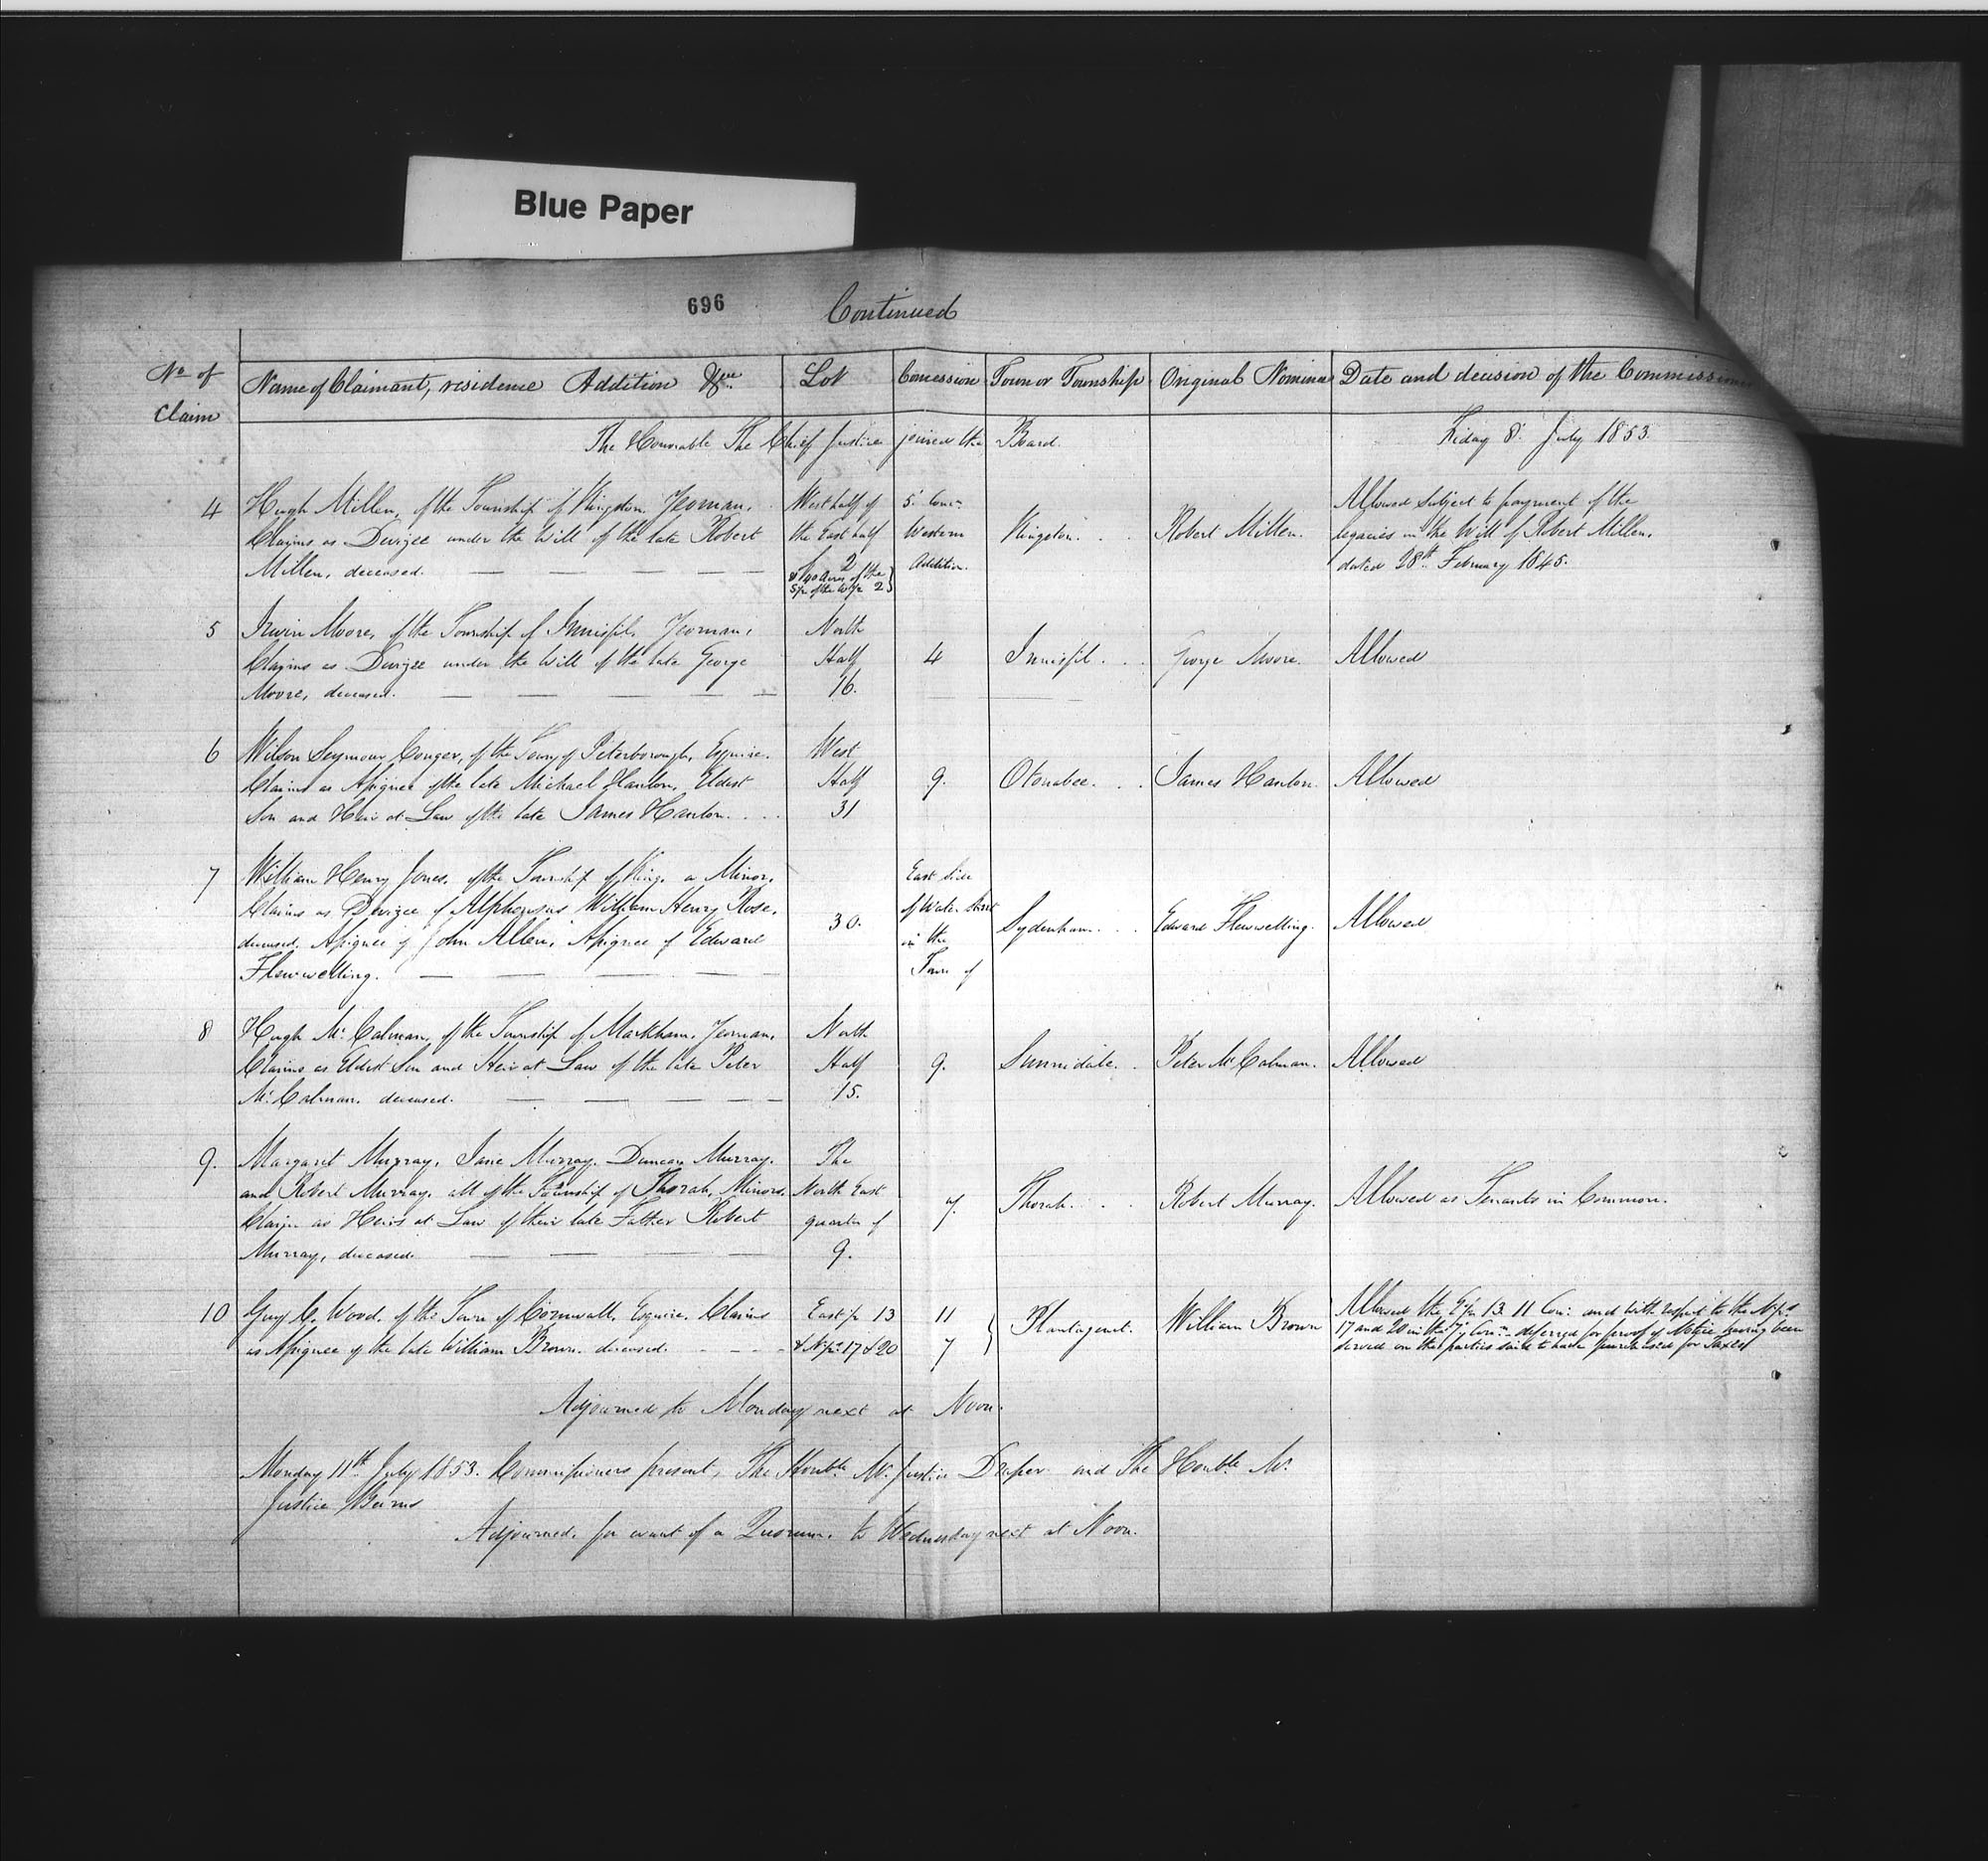 Blue Paper
696 Continued
No. of Claim
Name of Claimant, residence Addition &ca.
Lot
Concession
Town or Township
Original Nominee
Date and decision of the Commissioners
The Honorable The Chief Justice joined the Board.
Friday 8. July 1853.
4
Hugh Millen, of the Township of Kingston Yeoman,
Claims as Devizee under the Will of the late Robert
Millen, deceased.
West half of
the East half
2
& 40 acres of the
S/h of the W/h 2
5 Con:
Western
Addition.
Kingston.
Robert Millen.
Allowed subject to payment of the
legacies in the Will of Robert Millen,
dated 28th February 1845.
5
Irwin Moore, of the Township of Innisfil, Yeoman,
Claims as Devizee under the Will of the late George
Moore, deceased.
North
Half
16.
4
Innisfil.
George Moore.
Allowed
6
Wilson Seymour Conger, of the Town of Peterborough, Esquire.
Claims as Assignee of the late Michael Hanlon, Eldest
Son and Heir at Law of the late James Hanlon.
West
Half
31
9.
Otonabee.
James Hanlon.
Allowed
7
William Henry Jones, of the Township of King, a Minor,
Claims as Devizee of Alphonsus William Henry Rose,
deceased, Assignee of John Allen, Assignee of Edward
Flewwelling.
30.
East Side
of Water Street
in the
Town of
Sydenham.
Edward Flewwelling.
Allowed
8
Hugh McCalman, of the Township of Markham, Yeoman,
Claims as Eldest Son and Heir at Law of the late Peter
McCalman, deceased.
North
Half
15.
9.
Sunnidale.
Peter McCalman.
Allowed
9.
Margaret Murray, Jane Murray, Duncan Murray,
and Robert Murray, all of the Township of Thorah, Minors,
Claim as Heirs at Law of their late Father Robert
Murray, deceased
The
North East
quarter of
9.
7.
Thorah.
Robert Murray.
Allowed as Tenants in Common.
10
Guy C. Wood, of the Town of Cornwall, Esquire, Claims
as Assignee of the late William Brown, deceased.
East pr 13
& N/ps 17 & 20
11
7
Plantagenet.
William Brown
Allowed the E/pr 13. 11 Con: and with respect to the N/ps
17 and 20 in the 7 Con: deferred for proof of Notice having been
served on the parties said to have purchased for Taxes
Adjourned to Monday next at Noon.
Monday 11th July 1853. Commissioners present, The Honble Mr. Justice Draper and The Honble Mr.
Justice Burns
Adjourned, for want of a Quorum, to Wednesday next at Noon.